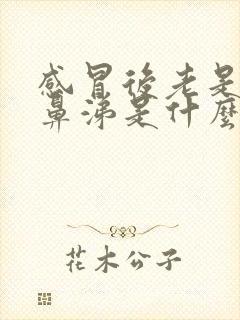 感冒後老是
鼻涕是什麼
花木公子